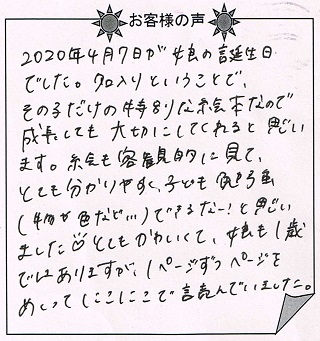 お客様の声
2020年4月7日が娘の誕生日
でした。名入りということで、
その子だけの特別な絵本なので
成長しても大切にしてくれると思い
ます。絵も客観的に見て、
とても分かりやすく、子ども
(物や色など…)できるなー!と思い
ました とてもかわいくて、娘も1歳
ではありますが、1ページずつページを
めくってにこにこで読んでいました。